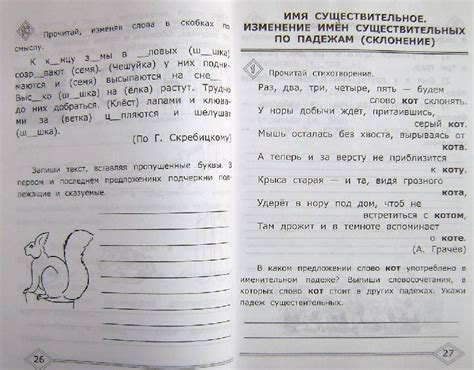 Прочитай, изменяя слова в скобках по
смыслу.
К к__нцу з__мы в __ловых (ш__шка)
созр__вают (семя). (Чешуйка) у них подни-
маются и (семя) высыпаются на сне
Выс__ко (ш__шка) на (ёлка) растут. Трудно
до них добраться. (Клёст) лапами и клюва-
ми за (ветка) ц__пляются и шелушат
(ш__шка).
(По Г. Скребицкому)
Запиши текст, вставляя пропущенные буквы. В
первом и последнем предложениях подчеркни под-
лежащие и сказуемые.
26
ИМЯ СУЩЕСТВИТЕЛЬНОЕ.
ИЗМЕНЕНИЕ ИМЁН СУЩЕСТВИТЕЛЬНЫХ
ПО ПАДЕЖАМ (СКЛОНЕНИЕ)
1 Прочитай стихотворение.
Раз, два, три, четыре, пять — будем
слово кот склонять.
У норы добычи ждёт, притаившись,
серый кот.
Мышь осталась без хвоста, вырываясь от
кота.
А теперь и за версту не приблизится
к коту.
Крыса старая — и та, видя грозного
кота,
Удерёт в нору под дом, чтоб не
встретиться с котом,
Там дрожит и в темноте вспоминает
о коте.
(А. Грачёв)
В каком предложении слово кот употреблено в
именительном падеже? Выпиши словосочетания, в
которых слово кот стоит в других падежах. Укажи
падеж существительных.
27